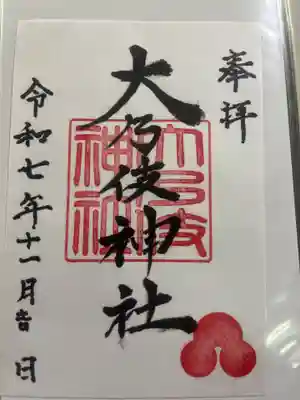 奉拝
大乃伎神社
大乃伎
神社
令和七年十一月吉日